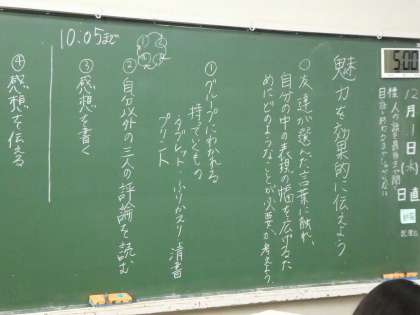 12月1日(火)日直
5:00
魅力を効果的に伝えよう
友達が選んだ言葉に触れ、
自分の中の表現の幅を広げるた
めにどのようなことが必要か考えよう
①グループにわかれる
持ってくもの
タブレット・ふりかえり清書
プリント
②自分以外の三人の評論を読む
10.05まで
③感想を書く
④感想を伝える